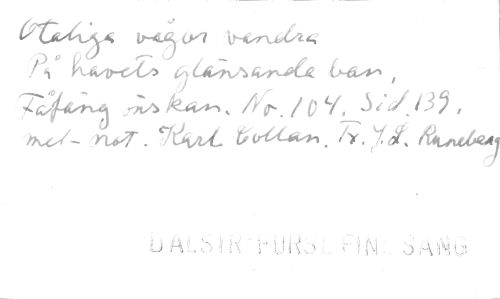 Otaliga vågor vandra
På havets glänsande ban,
Fåfäng önskan. No. 104. Sid. 139.
mel-not. Karl Collan. Tx. J.L. Runeberg
DALSTR FÖRSL FINL SÅNG